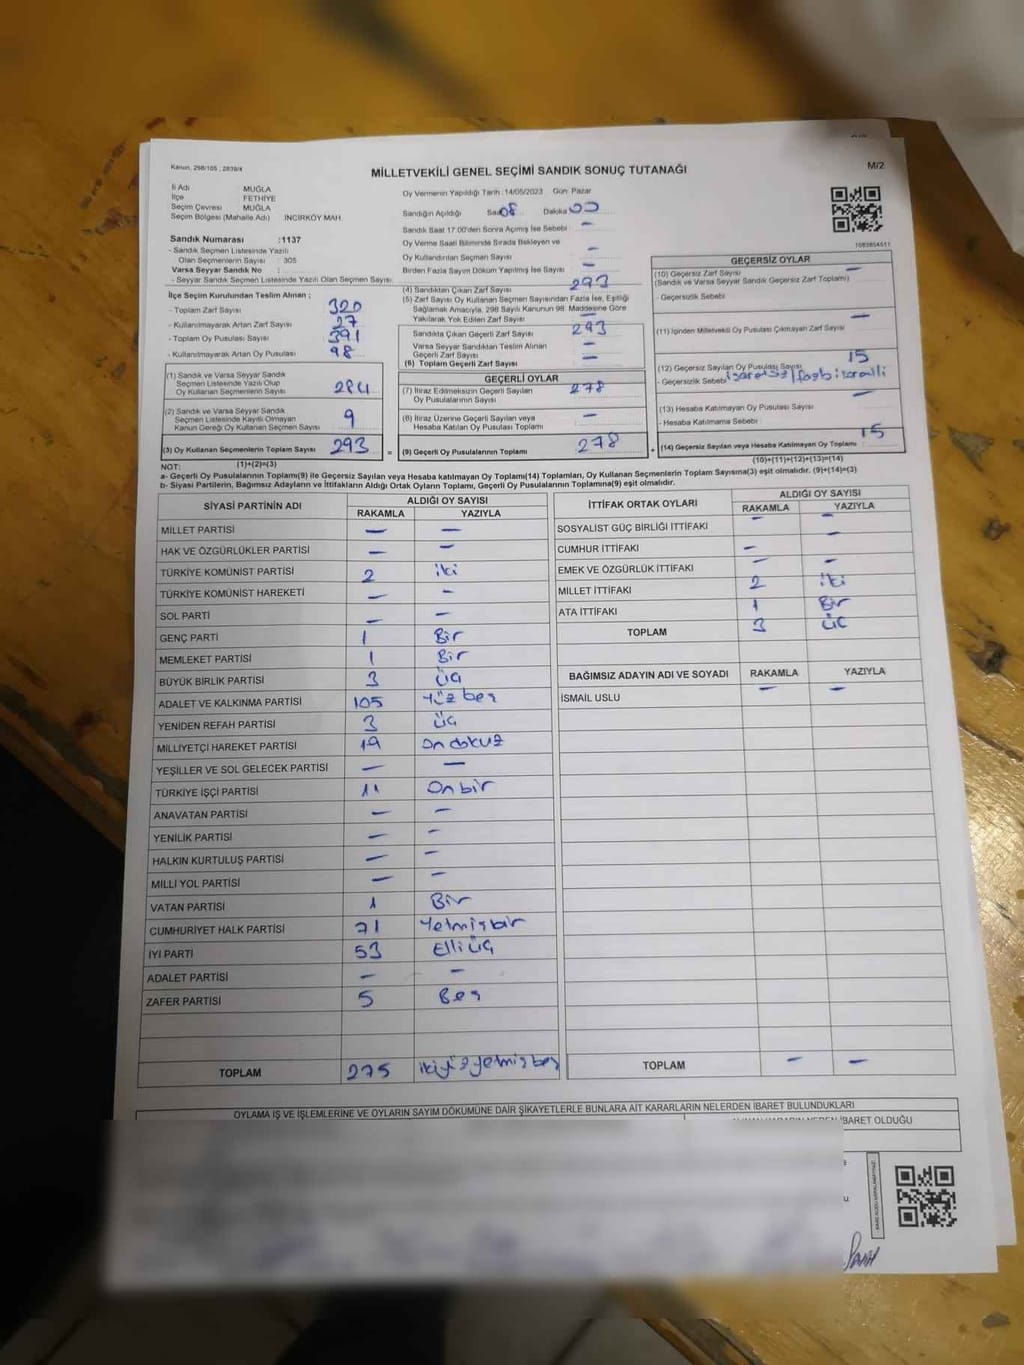 Kanun, 298/105 , 2839/x
M/2
MİLLETVEKİLİ GENEL SEÇİMİ SANDIK SONUÇ TUTANAĞI
İl Adı MUĞLA
İlçe FETHİYE
Seçim Çevresi MUĞLA
Seçim Bölgesi (Mahalle Adı) İNCİRKÖY MAH.
Sandık Numarası :1137
- Sandık Seçmen Listesinde Yazılı
Olan Seçmenlerin Sayısı 305
Varsa Seyyar Sandık No :
- Seyyar Sandık Seçmen Listesinde Yazılı Olan Seçmen Sayısı
Oy Vermenin Yapıldığı Tarih :14/05/2023 Gün: Pazar
Sandığın Açıldığı Saat 08 Dakika 00
Sandık Saat 17:00'den Sonra Açılmış İse Sebebi –
Oy Verme Saati Bitiminde Sırada Bekleyen ve
Oy Kullandırılan Seçmen Sayısı –
Birden Fazla Sayım Döküm Yapılmış İse Sayısı –
1083854511
İlçe Seçim Kurulundan Teslim Alınan ;
- Toplam Zarf Sayısı 320
- Kullanılmayarak Artan Zarf Sayısı 27
- Toplam Oy Pusulası Sayısı 391
- Kullanılmayarak Artan Oy Pusulası 98
(1) Sandık ve Varsa Seyyar Sandık
Seçmen Listesinde Yazılı Olup
Oy Kullanan Seçmen Sayısı 284
(2) Sandık ve Varsa Seyyar Sandık
Seçmen Listesinde Kayıtlı Olmayan
Kanun Gereği Oy Kullanan Seçmen Sayısı 9
(3) Oy Kullanan Seçmenlerin Toplam Sayısı 293
(1)+(2)=(3)
(4) Sandıktan Çıkan Zarf Sayısı 293
(5) Zarf Sayısı Oy Kullanan Seçmen Sayısından Fazla İse, Eşitliği
Sağlamak Amacıyla, 298 Sayılı Kanunun 98. Maddesine Göre
Yakılarak Yok Edilen Zarf Sayısı –
Sandıkta Çıkan Geçerli Zarf Sayısı 293
Varsa Seyyar Sandıktan Teslim Alınan
Geçerli Zarf Sayısı –
(6) Toplam Geçerli Zarf Sayısı –
GEÇERLİ OYLAR
(7) İtiraz Edilmeksizin Geçerli Sayılan
Oy Pusulalarının Sayısı 278
(8) İtiraz Üzerine Geçerli Sayılan veya
Hesaba Katılan Oy Pusulası Toplamı –
= (9) Geçerli Oy Pusulalarının Toplamı 278
GEÇERSİZ OYLAR
(10) Geçersiz Zarf Sayısı –
(Sandık ve Varsa Seyyar Sandık Geçersiz Zarf Toplamı)
- Geçersizlik Sebebi
(11) İçinden Milletvekili Oy Pusulası Çıkmayan Zarf Sayısı –
(12) Geçersiz Sayılan Oy Pusulası Sayısı 15
- Geçersizlik Sebebi
(13) Hesaba Katılmayan Oy Pusulası Sayısı –
- Hesaba Katılmama Sebebi
+ (14) Geçersiz Sayılan veya Hesaba Katılmayan Oy Toplamı 15
(10)+(11)+(12)+(13)=(14)
NOT:
a- Geçerli Oy Pusulalarının Toplamı(9) ile Geçersiz Sayılan veya Hesaba katılmayan Oy Toplam(14) Toplamları, Oy Kullanan Seçmenlerin Toplam Sayısına(3) eşit olmalıdır. (9)+(14)=(3)
b- Siyasi Partilerin, Bağımsız Adayların ve İttifakların Aldığı Ortak Oyların Toplamı, Geçerli Oy Pusulalarının Toplamına(9) eşit olmalıdır.
SİYASİ PARTİNİN ADI ALDIĞI OY SAYISI
RAKAMLA YAZIYLA
MİLLET PARTİSİ – –
HAK VE ÖZGÜRLÜKLER PARTİSİ – –
TÜRKİYE KOMÜNİST PARTİSİ 2 iki
TÜRKİYE KOMÜNİST HAREKETİ – –
SOL PARTİ – –
GENÇ PARTİ 1 Bir
MEMLEKET PARTİSİ 1 Bir
BÜYÜK BİRLİK PARTİSİ 3 üç
ADALET VE KALKINMA PARTİSİ 105 Yüz beş
YENİDEN REFAH PARTİSİ 3 üç
MİLLİYETÇİ HAREKET PARTİSİ 19 On dokuz
YEŞİLLER VE SOL GELECEK PARTİSİ – –
TÜRKİYE İŞÇİ PARTİSİ 11 On bir
ANAVATAN PARTİSİ – –
YENİLİK PARTİSİ – –
HALKIN KURTULUŞ PARTİSİ – –
MİLLİ YOL PARTİSİ – –
VATAN PARTİSİ 1 Bir
CUMHURİYET HALK PARTİSİ 71 Yetmiş bir
İYİ PARTİ 53 Elli üç
ADALET PARTİSİ – –
ZAFER PARTİSİ 5 Beş
TOPLAM 275 ikiyüzyetmişbeş
İTTİFAK ORTAK OYLARI ALDIĞI OY SAYISI
RAKAMLA YAZIYLA
SOSYALİST GÜÇ BİRLİĞİ İTTİFAKI – –
CUMHUR İTTİFAKI –
EMEK VE ÖZGÜRLÜK İTTİFAKI – –
MİLLET İTTİFAKI 2 iki
ATA İTTİFAKI 1 Bir
TOPLAM 3 üç
BAĞIMSIZ ADAYIN ADI VE SOYADI RAKAMLA YAZIYLA
İSMAİL USLU – –
TOPLAM – –
OYLAMA İŞ VE İŞLEMLERİNE VE OYLARIN SAYIM DÖKÜMÜNE DAİR ŞİKAYETLERLE BUNLARA AİT KARARLARIN NELERDEN İBARET BULUNDUKLARI
İBARET OLDUĞU